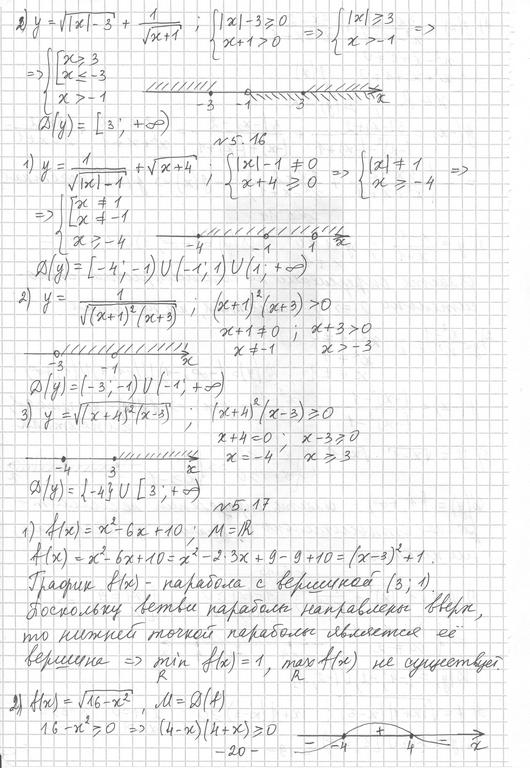 2) y = √(|x|-3) + 1/√(x+1) ; { |x|-3 ≥ 0, x+1 > 0 => { |x| ≥ 3, x > -1 =>
=> { [ x ≥ 3, x ≤ -3, x > -1
-3 -1 3 x
D(y) = [3; +∞)
№5.16
1) y = 1/√(|x|-1) + √(x+4) ; { |x|-1 ≠ 0, x+4 ≥ 0 => { |x| ≠ 1, x ≥ -4 =>
=> { [ x ≠ 1, x ≠ -1, x ≥ -4
-4 -1 1 x
D(y) = [-4; -1) ∪ (-1; 1) ∪ (1; +∞)
2) y = 1/√((x+1)²(x+3)) ; (x+1)²(x+3) > 0
x+1 ≠ 0 ; x+3 > 0
x ≠ -1 x > -3
-3 -1 x
D(y) = (-3; -1) ∪ (-1; +∞)
3) y = √((x+4)²(x-3)) ; (x+4)²(x-3) ≥ 0
x+4 = 0 ; x-3 ≥ 0
x = -4 x ≥ 3
-4 3 x
D(y) = {-4} ∪ [3; +∞)
№5.17
1) f(x) = x²-6x+10 ; M = ℝ
f(x) = x²-6x+10 = x²-2·3x+9-9+10 = (x-3)²+1.
График f(x) - парабола с вершиной (3; 1).
Поскольку ветви параболы направлены вверх,
то нижней точкой параболы является её
вершина => min f(x) = 1, max f(x) не существует
R R
2) f(x) = √(16-x²), M = D(f)
16-x² ≥ 0 => (4-x)(4+x) ≥ 0
- -4 + 4 - x
-20-